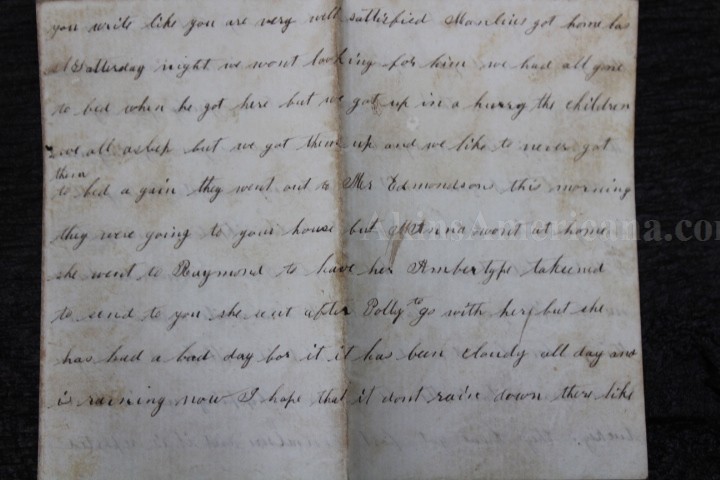 you write like you are very well sattisfied Manlius got home las
Satterday night we wont looking for him we had all gone
to bed when he got here but we got up in a hurry the children
were all asleep but we got them up and we like to never got
them
to bed a gain they went out to Mr Edmondsons this morning
they were going to your house but Minna wont at home
she went to Raymond to have her Ambertype takened
to send to you she went after Polly to go with her but she
has had a bad day for it it has been cloudy all day and
is raining now I hope that it dont rain down there like
AkinsAmericana.com